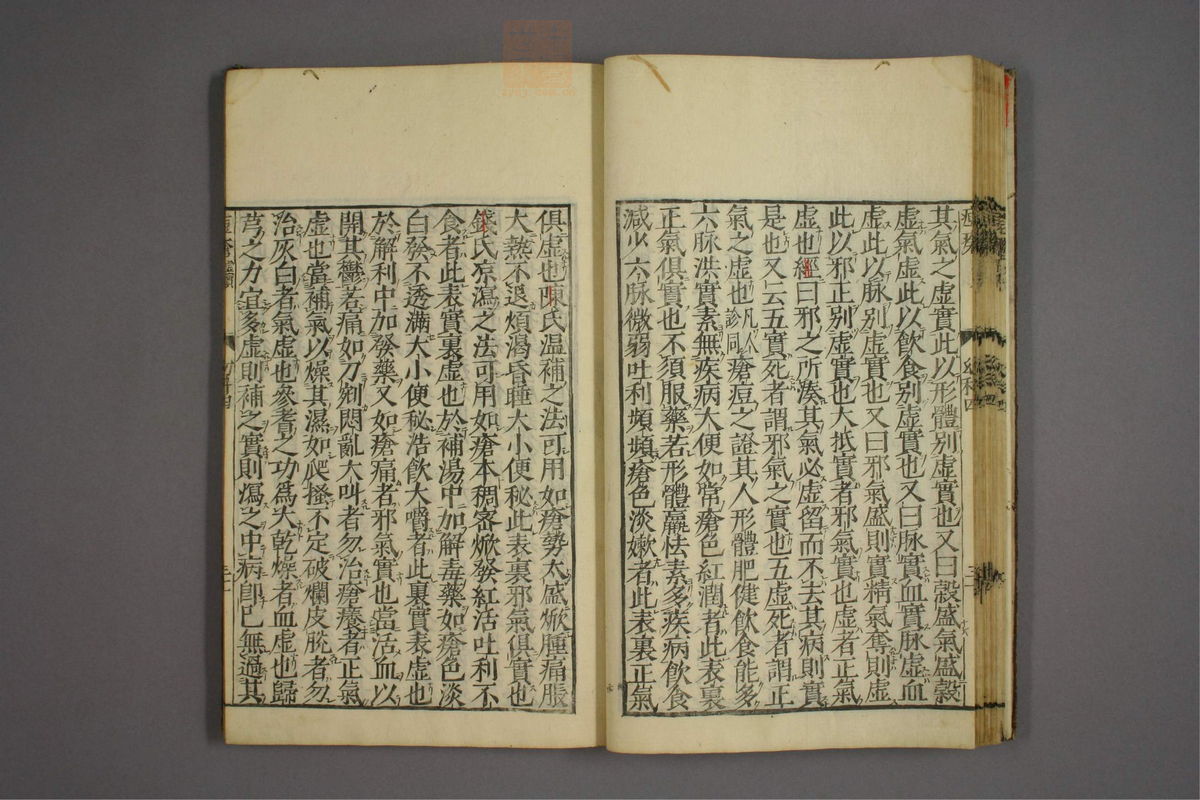 其氣之虛實此以形體別虛實也又曰穀盛氣盛穀
虛氣虛此以飲食別虛實也又曰脉實血實脉虛血
虛此以脉別虛實也又曰邪氣盛則實精氣奪則虛
此以邪正別虛實也大抵實者邪氣實也虛者正氣
虛也經曰邪之所湊其氣必虛留而不去其病則實
是也又云五實死者謂邪氣之實也五虛死者謂正
氣之虛也凡人診同瘡痘之證其人形體肥健飲食能多
六脉洪實素無疾病大便如常瘡色紅潤者此表裏
正氣俱實也不須服藥若形體羸怯素多疾病飲食
減少六脉微弱吐利頻頻瘡色淡嫩者此表裏正氣
俱虛也陳氏温補之法可用如瘡勢太盛焮腫痛脹
大熱不退煩渴昏睡大小便秘此表裏邪氣俱實也
錢氏凉瀉之法可用如瘡本稠密焮發紅活吐利不
食者此表實裏虛也於補湯中加解毒藥如瘡色淡
白發不透滿大小便秘浩飲大嚼者此裏實表虛也
於解利中加發藥又如瘡痛者邪氣實也當活血以
開其鬱若痛如刀剜悶亂大叫者勿治瘡癢者正氣
虛也當補氣以燥其濕如爬搔不定破爛皮脫者勿
治灰白者氣虛也參耆之功爲大乾燥者血虛也歸
芎之力宜多虛則補之實則瀉之中病即已無過其
幼科四